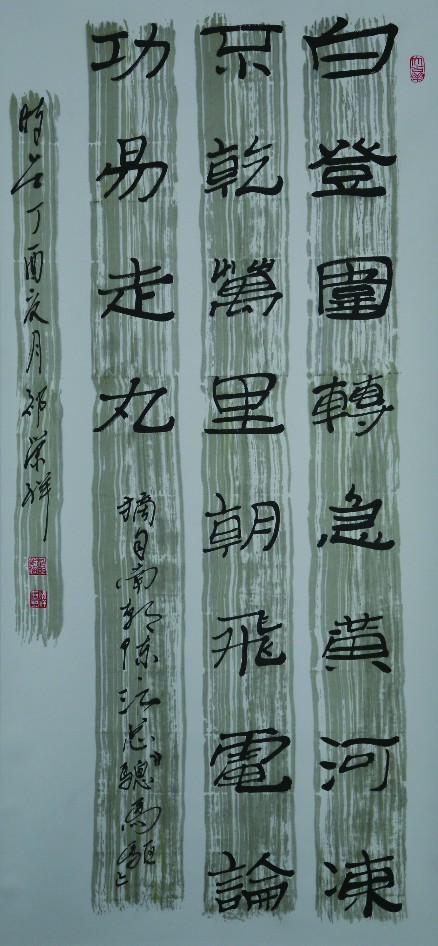 白登圍轉急黃河凍
不乾萬里朝飛電論
功易走丸
摘自南朝陳江总《驄馬驅》
時在丁酉亥月榮祥